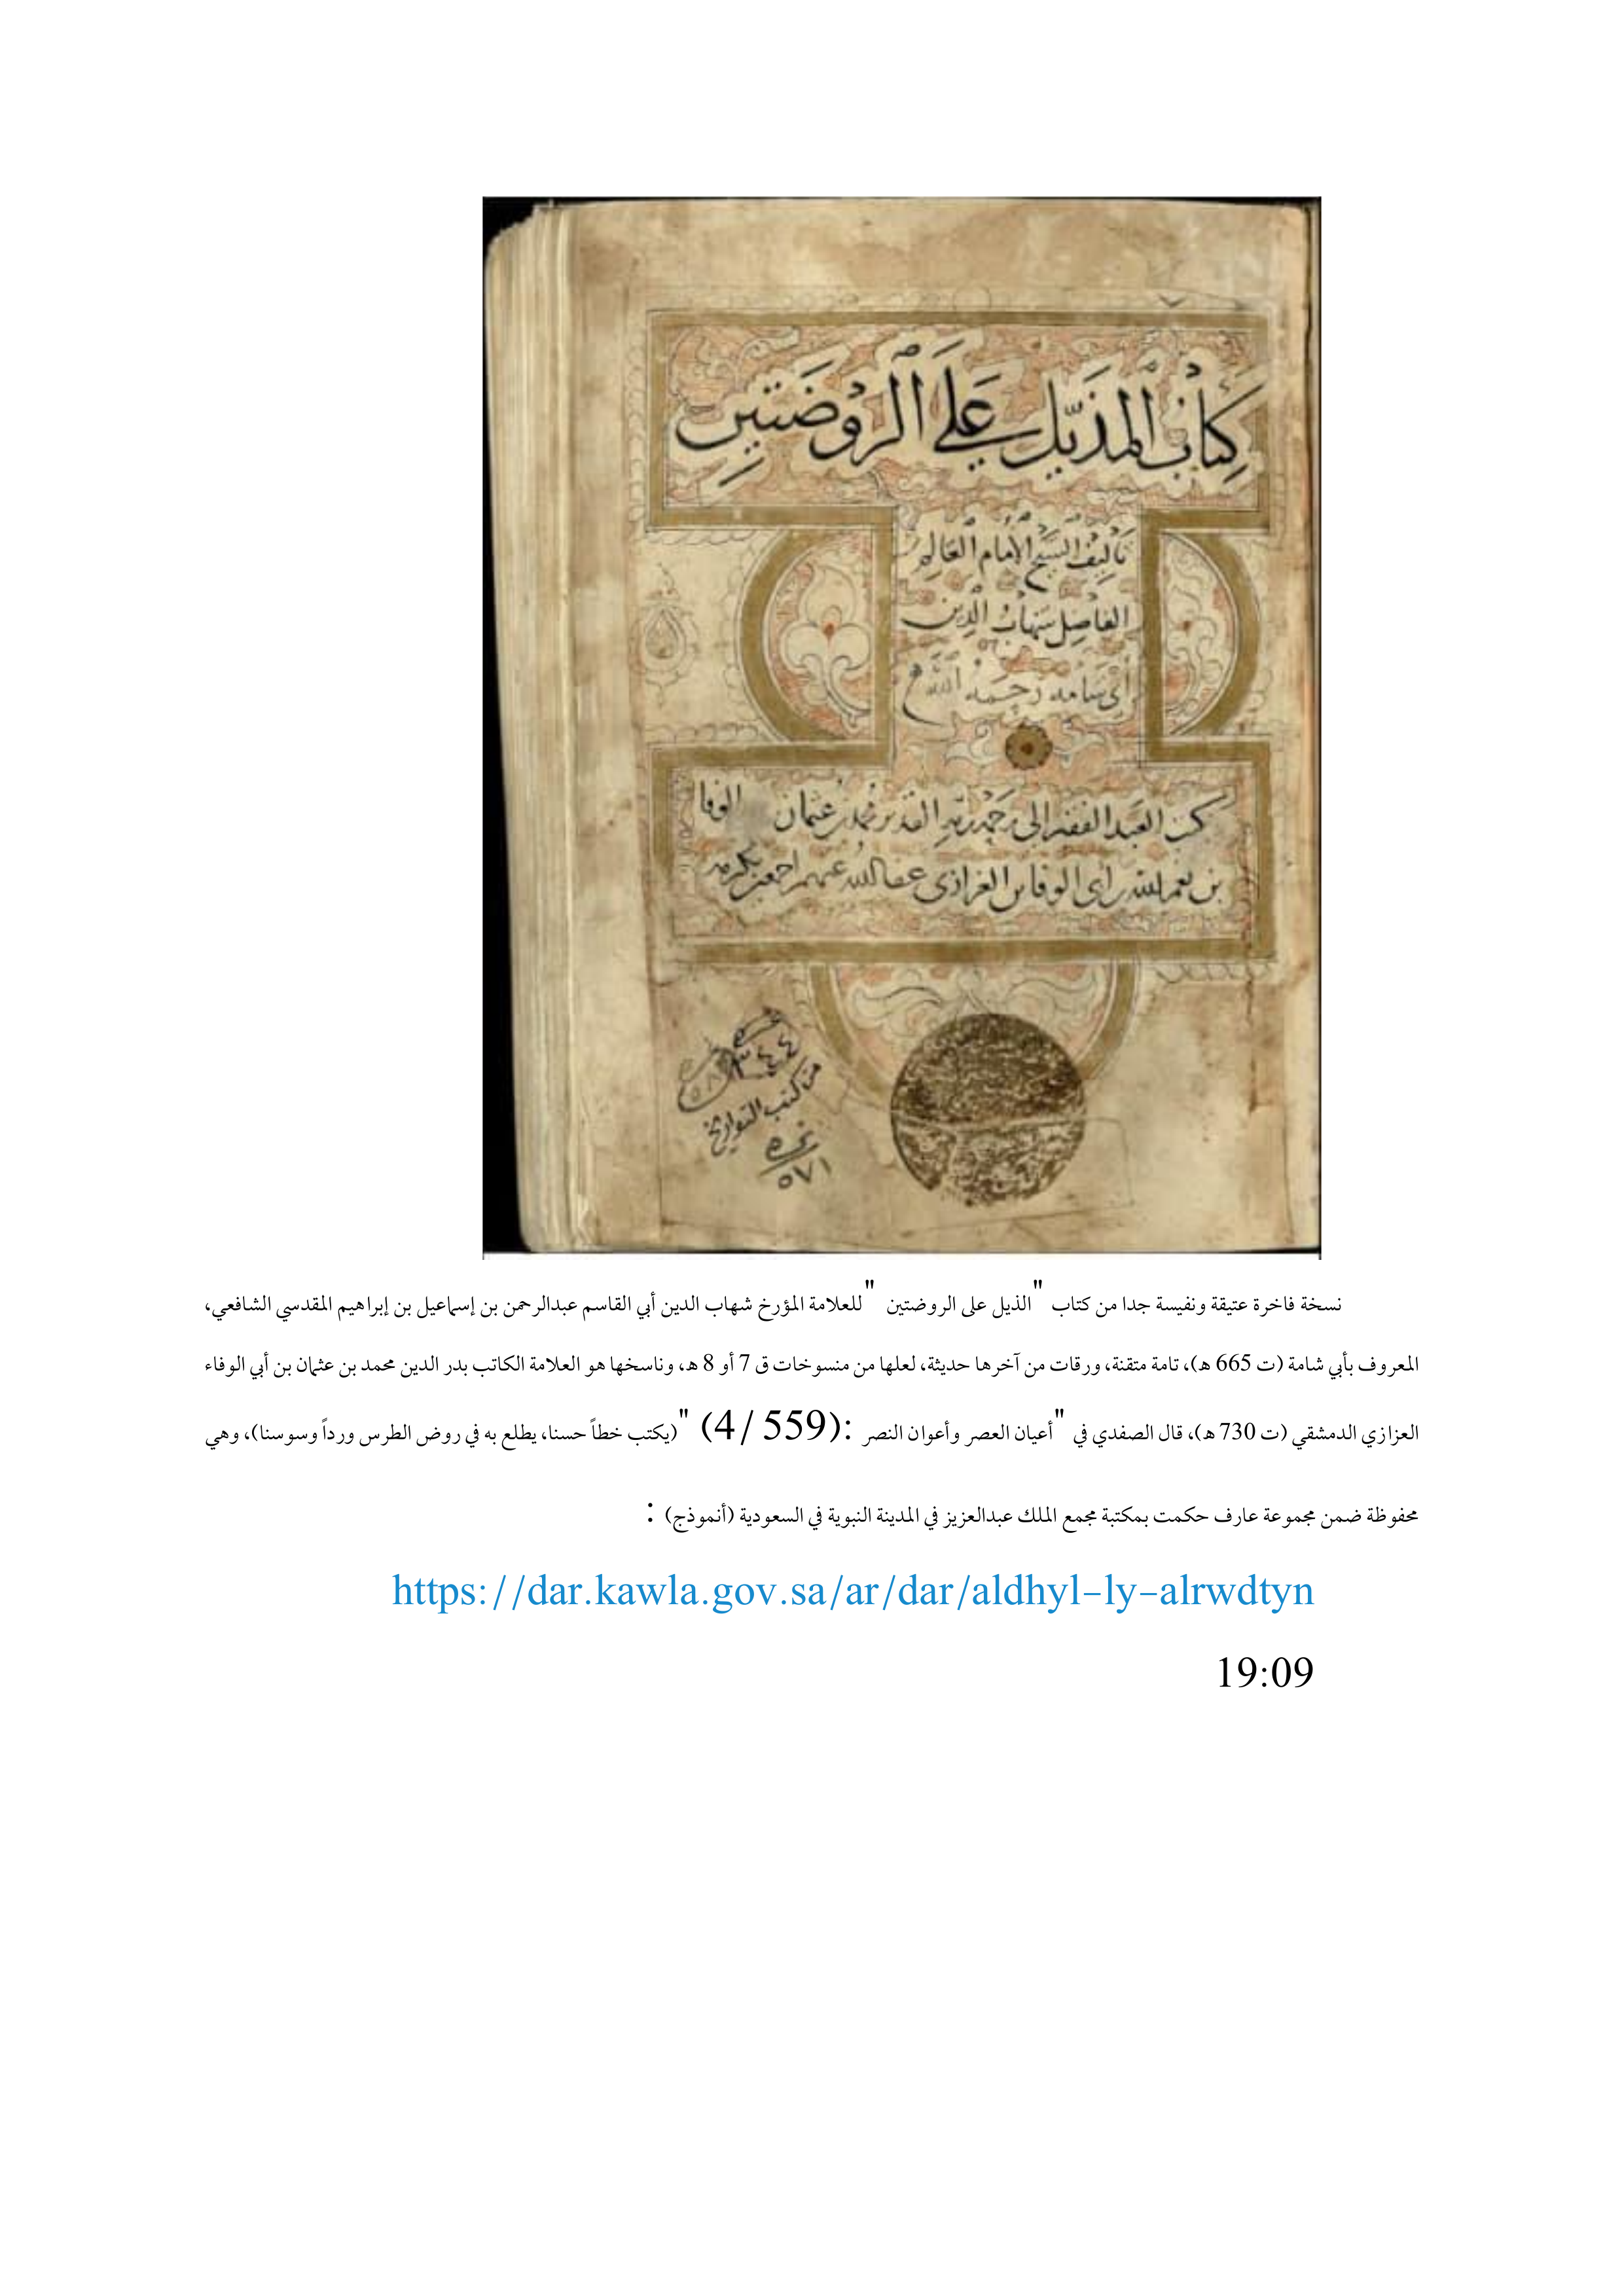 كتاب المذيّل على الروضتين
تأليف الشيخ الإمام العالم
الفاضل شهاب الدين
أبي شامه رحمه الله
العبد الفقير إلى رحمة ربه القدير محمد بن عثمان الوفا
بن أبي الوفا بن العزازي عفا الله عنهم اجمعين بكرمه
٣٤٤
من كتب التواريخ
نمره
٥٧١
نسخة فاخرة عتيقة ونفيسة جدا من كتاب "الذيل على الروضتين" للعلامة المؤرخ شهاب الدين أبي القاسم عبدالرحمن بن إسماعيل بن إبراهيم المقدسي الشافعي،
المعروف بأبي شامة (ت 665 هـ)، تامة متقنة، ورقات من آخرها حديثة، لعلها من منسوخات ق 7 أو 8 هـ، وناسخها هو العلامة الكاتب بدر الدين محمد بن عثمان بن أبي الوفاء
العزازي الدمشقي (ت 730 هـ)، قال الصفدي في "أعيان العصر وأعوان النصر :(559 /4) "(يكتب خطاً حسنا، يطلع به في روض الطرس ورداً وسوسنا)، وهي
محفوظة ضمن مجموعة عارف حكمت بمكتبة مجمع الملك عبدالعزيز في المدينة النبوية في السعودية (أنموذج) :
https://dar.kawla.gov.sa/ar/dar/aldhyl-ly-alrwdtyn
19:09